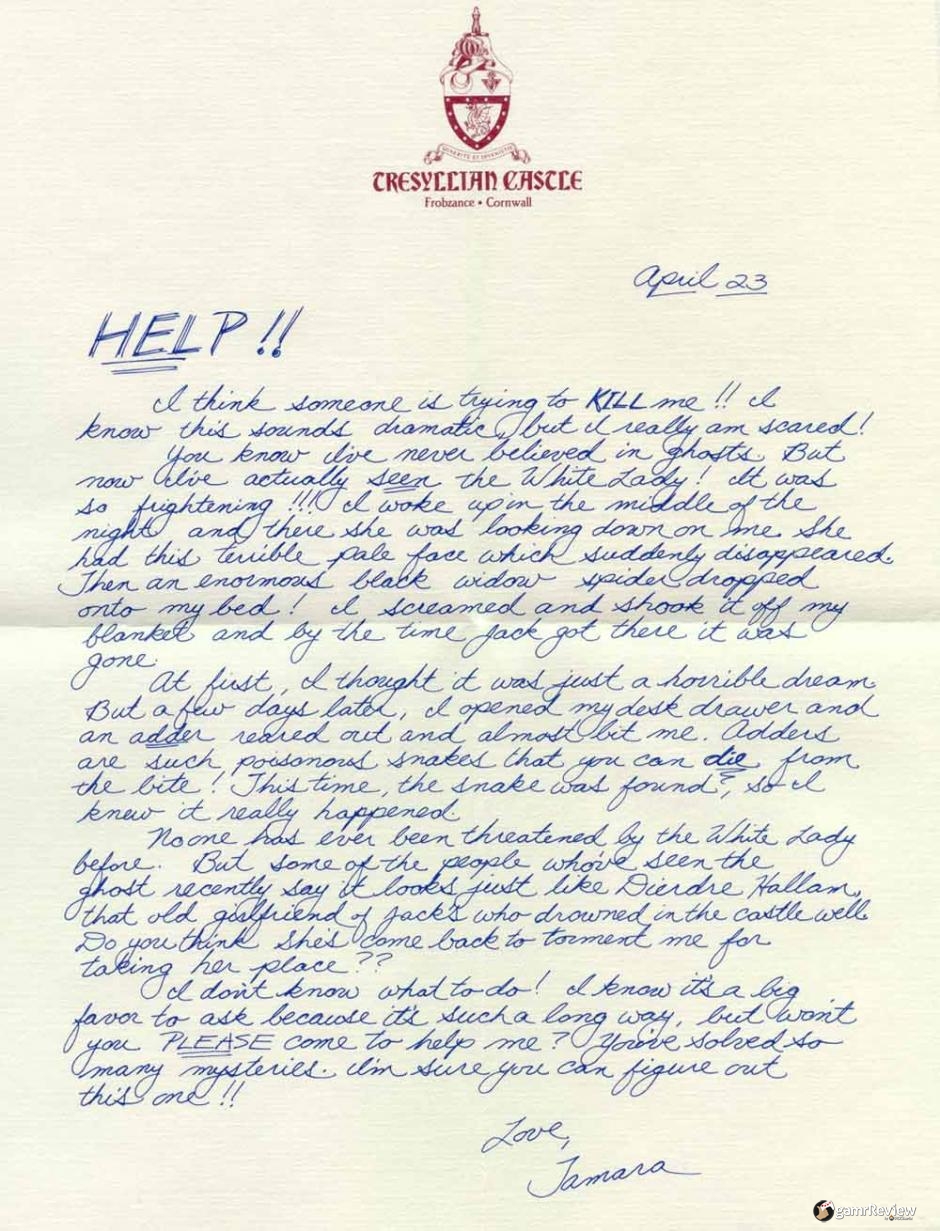 TRESYLLIAN CASTLE
Frobzance • Cornwall
April 23
HELP!!
I think someone is trying to KILL me!! I
know this sounds dramatic, but I really am scared!
You know I've never believed in ghosts. But
now I've actually seen the White Lady! It was
so frightening!!! I woke up in the middle of the
night and there she was looking down on me. She
had this terrible pale face which suddenly disappeared.
Then an enormous black widow spider dropped
onto my bed! I screamed and shook it off my
blanket and by the time Jack got there it was
gone.
At first, I thought it was just a horrible dream.
But a few days later, I opened my desk drawer and
an adder reared out and almost bit me. Adders
are such poisonous snakes that you can die from
the bite! This time, the snake was found, so I
knew it really happened.
No one has ever been threatened by the White Lady
before. But some of the people who've seen the
ghost recently say it looks just like Dierdre Hallam,
that old girlfriend of Jack's who drowned in the castle well.
Do you think she's come back to torment me for
taking her place??
I don't know what to do! I know it's a big
favor to ask because it's such a long way, but won't
you PLEASE come to help me? You've solved so
many mysteries. I'm sure you can figure out
this one!!
Love,
Tamara
gamrReview